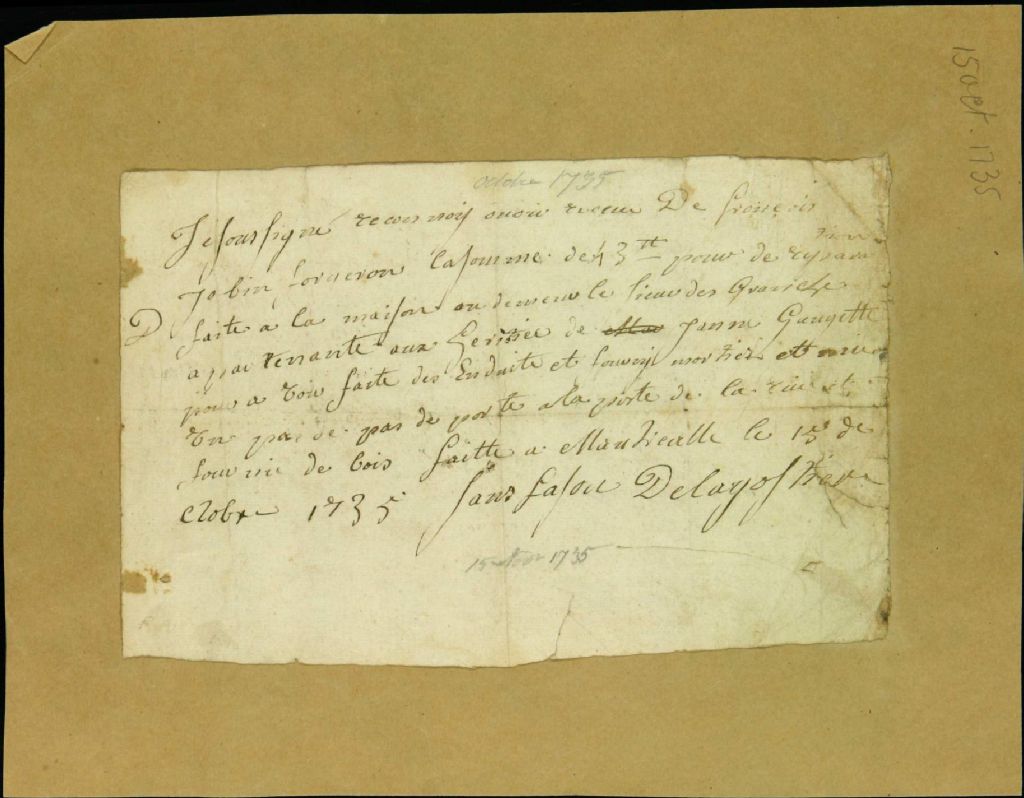 15 oct. 1735
octobre 1735
Je soussigné reconnoij avoir receu De françois
Jobin forgeron la somme de 43 tt pour de reparation
D faite a la maison au deneuve le lieu des
apartenante aux Geritiée de Janne Gaugette
pour a voir faite des Enduite et fourny mortiée et mie
un pas de pas de porte a la porte de la rue et
fournie de bois faitte a le 15 de
ctobre 1735 sans fason
15 1735